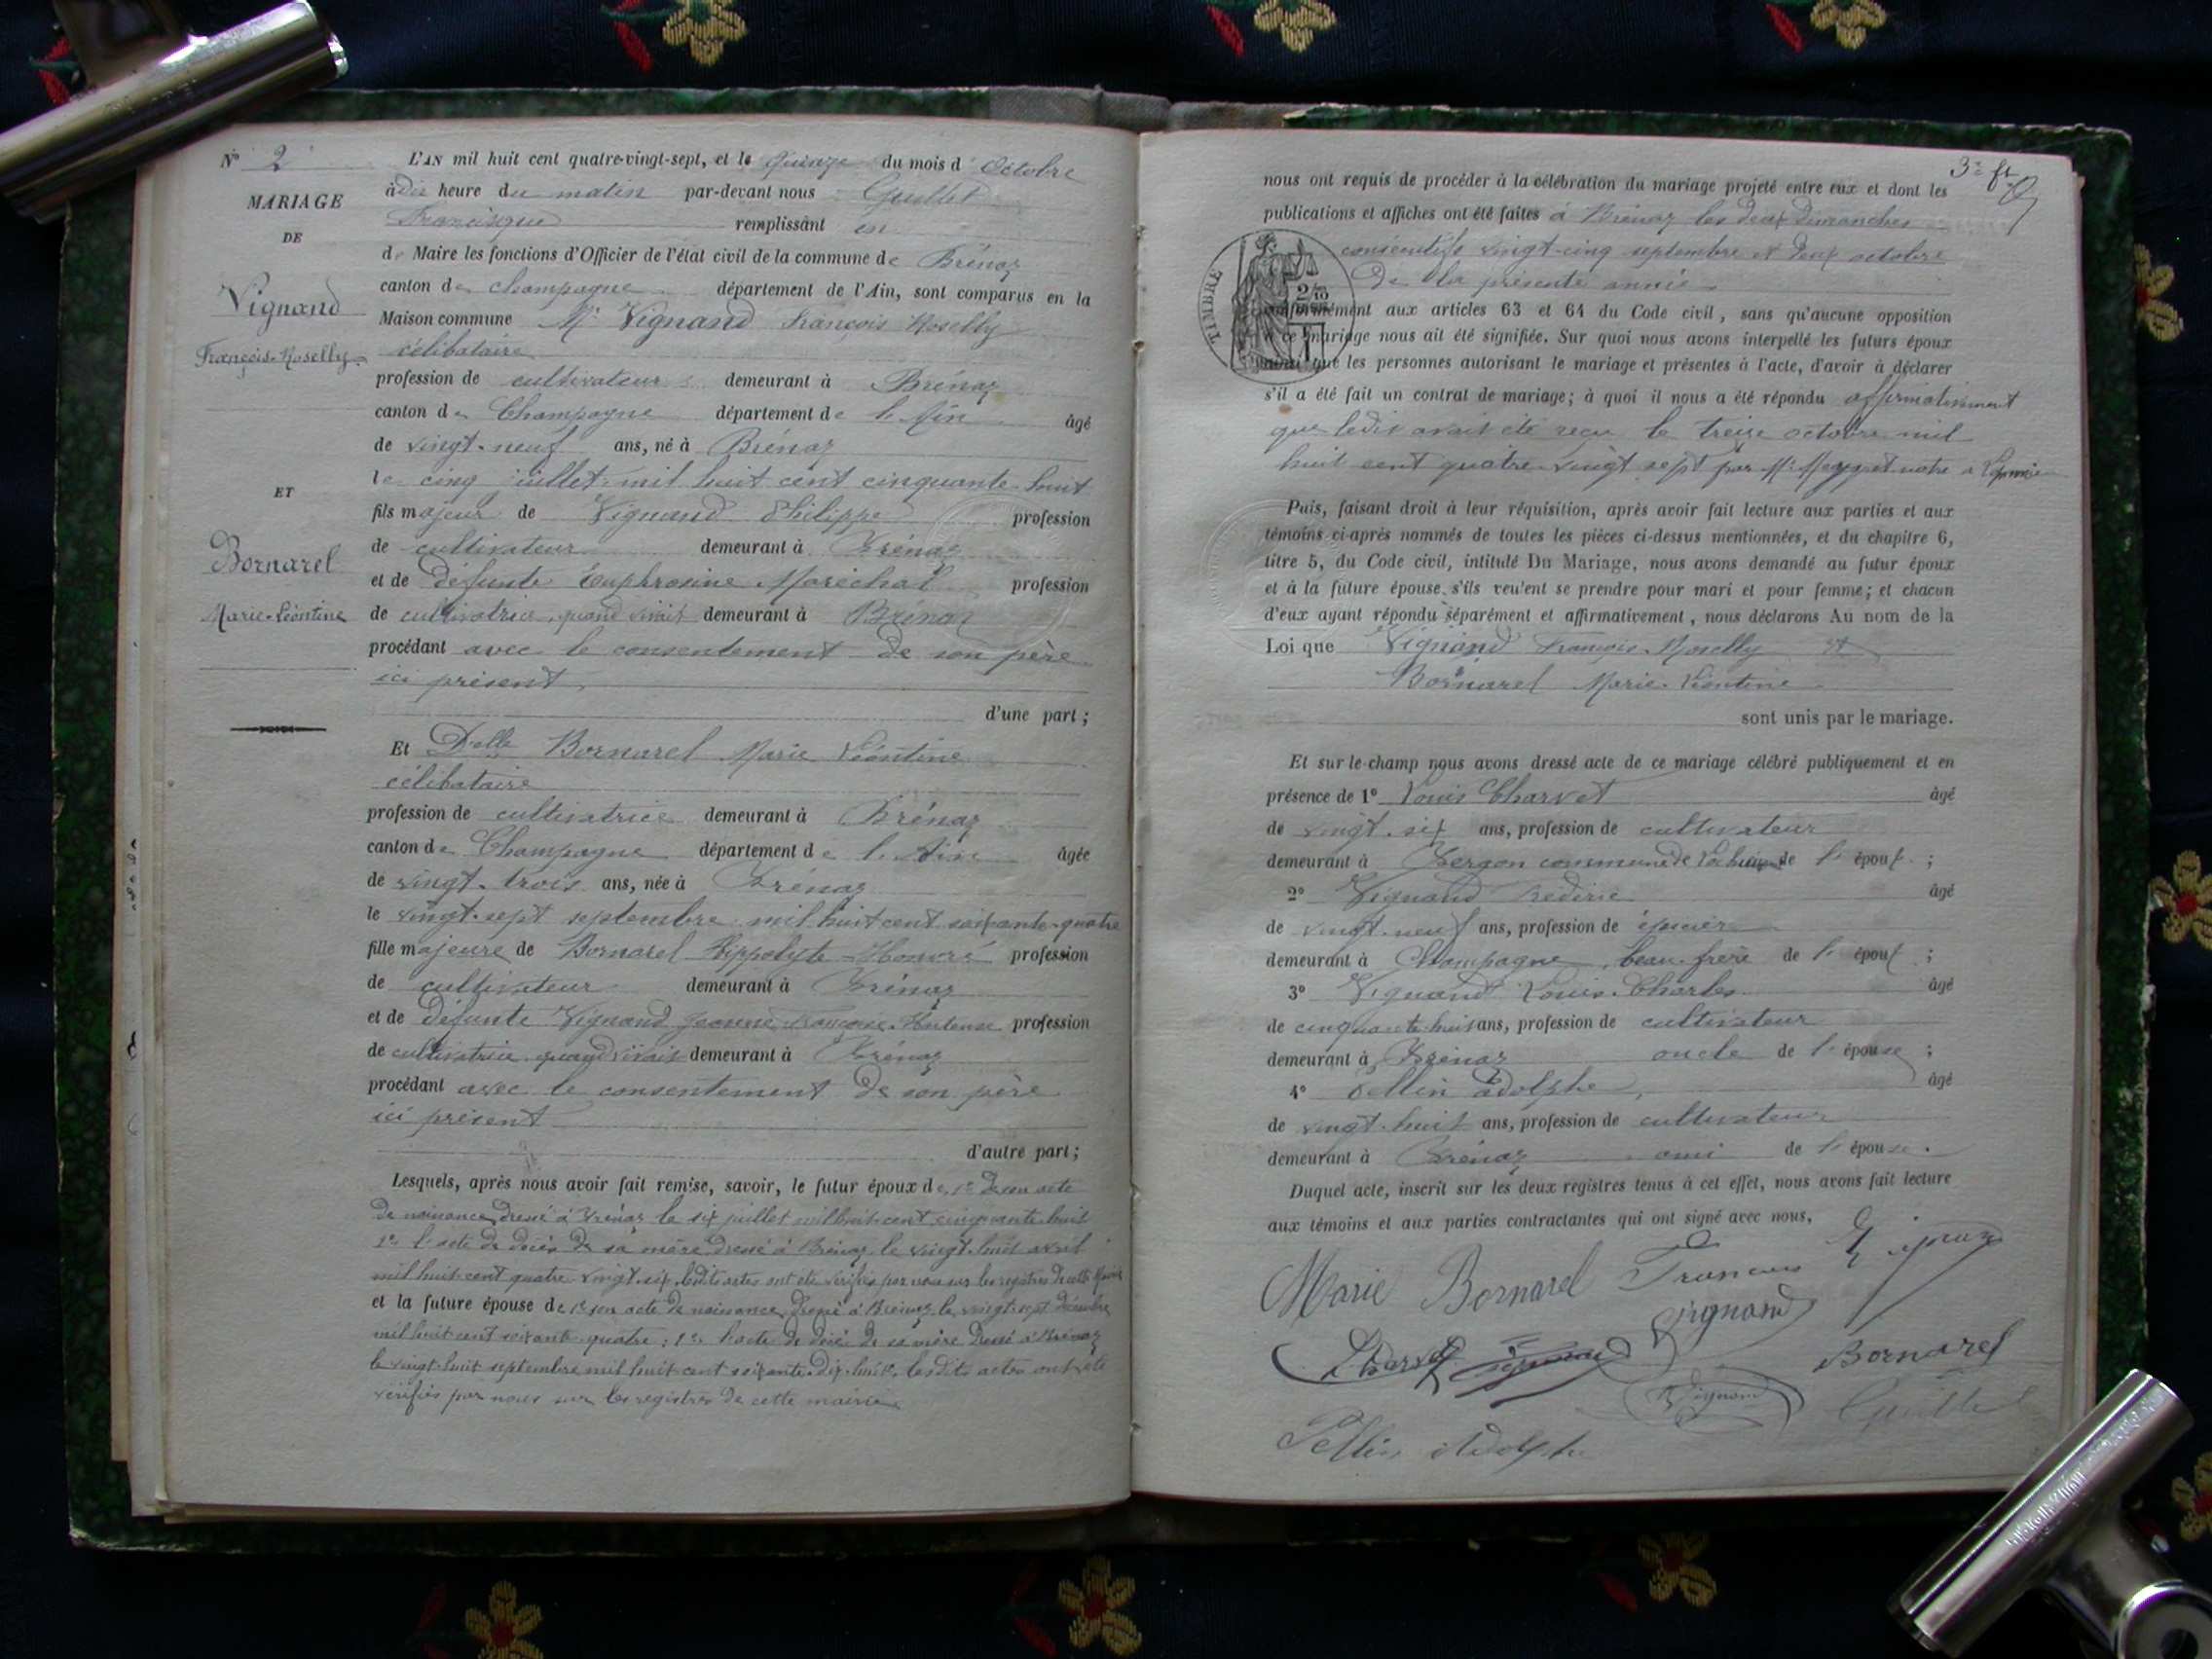 N° 2
MARIAGE
DE
Vignand
François-Roselly
ET
Bornarel
Marie-Léontine
L'AN mil huit cent quatre-vingt-sept, et le quinze du mois d'Octobre
à dix heure du matin par-devant nous Guillet
Francisque remplissant en
de Maire les fonctions d'Officier de l'état civil de la commune de Brénaz
canton de Champagne département de l'Ain, sont comparus en la
Maison commune Mr Vignand François Roselly
célibataire
profession de cultivateur demeurant à Brénaz
canton de Champagne département de l'Ain âgé
de vingt-neuf ans, né à Brénaz
le cinq juillet mil huit cent cinquante-huit
fils majeur de Vignand Philippe profession
de cultivateur demeurant à Brénaz
et de défunte Euphrosine Maréchal profession
de cultivatrice, quand vivait demeurant à Brénaz
procédant avec le consentement de son père
ici présent
d'une part;
Et Delle Bornarel Marie Léontine
célibataire
profession de cultivatrice demeurant à Brénaz
canton de Champagne département de l'Ain âgée
de vingt-trois ans, née à Brénaz
le vingt-sept septembre mil huit cent soixante-quatre
fille majeure de Bornarel Hippolyte-Honoré profession
de cultivateur demeurant à Brénaz
et de défunte Vignand Jeanne Françoise Hortense profession
de cultivatrice quand vivait demeurant à Brénaz
procédant avec le consentement de son père
ici présent
d'autre part;
Lesquels, après nous avoir fait remise, savoir, le futur époux de, 1° de son acte
de naissance dressé à Brénaz le six juillet mil huit cent cinquante-huit
2° l'acte de décès de sa mère dressé à Brénaz le vingt-huit avril
mil huit cent quatre-vingt-six lesdits actes ont été vérifiés par nous sur les registres de cette Mairie
et la future épouse de 1° son acte de naissance dressé à Brénaz le vingt-sept
mil huit cent soixante-quatre; 2° l'acte de décès de sa mère dressé à Brénaz
le vingt-huit septembre mil huit cent soixante-dix-huit, lesdits actes ont été
vérifiés par nous sur les registres de cette mairie
3e ft
nous ont requis de procéder à la célébration du mariage projeté entre eux et dont les
publications et affiches ont été faites à Brénaz les deux Dimanches
consécutifs vingt-cinq septembre et deux octobre
de la présente année
TIMBRE
conformément aux articles 63 et 64 du Code civil, sans qu'aucune opposition
à ce mariage nous ait été signifiée. Sur quoi nous avons interpellé les futurs époux
ainsi que les personnes autorisant le mariage et présentes à l'acte, d'avoir à déclarer
s'il a été fait un contrat de mariage; à quoi il nous a été répondu affirmativement
que ledit avait été reçu le treize octobre mil
huit cent quatre-vingt sept par Mr
Puis, faisant droit à leur réquisition, après avoir fait lecture aux parties et aux
témoins ci-après nommés de toutes les pièces ci-dessus mentionnées, et du chapitre 6,
titre 5, du Code civil, intitulé Du Mariage, nous avons demandé au futur époux
et à la future épouse s'ils veulent se prendre pour mari et pour femme; et chacun
d'eux ayant répondu séparément et affirmativement, nous déclarons Au nom de la
Loi que Vignand François Roselly et
Bornarel Marie-Léontine
sont unis par le mariage.
Et sur-le-champ nous avons dressé acte de ce mariage célébré publiquement et en
présence de 1° Louis Charvet âgé
de vingt-six ans, profession de cultivateur
demeurant à commune de de l'époux;
2° Vignand Frédéric âgé
de vingt-neuf ans, profession de épicier
demeurant à Champagne, beau-frère de l'époux;
3° Vignand Louis-Charles âgé
de cinquante-huit ans, profession de cultivateur
demeurant à Brénaz oncle de l'épouse;
4° Pellin Adolphe, âgé
de vingt-huit ans, profession de cultivateur
demeurant à Brénaz ami de l'épouse.
Duquel acte, inscrit sur les deux registres tenus à cet effet, nous avons fait lecture
aux témoins et aux parties contractantes qui ont signé avec nous,
Marie Bornarel François
Vignand
Charvet Vignand Bornarel
Vignand Guillet
Pellin Adolphe